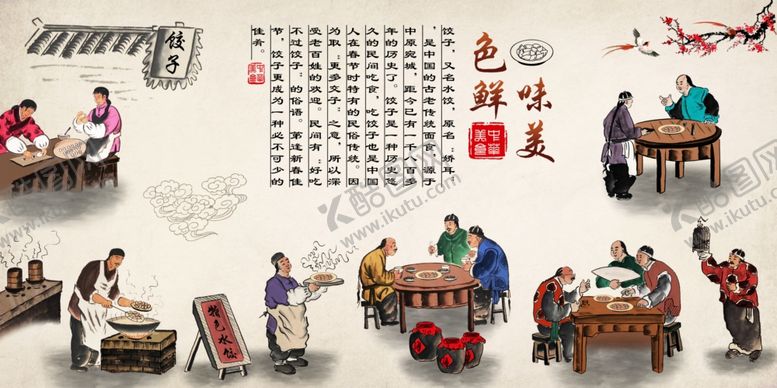 饺子
饺子，又名水饺，原名：娇耳：
，是中国的古老传统面食，源于
中原宛城，距今已有一千八百多
年的历史了。饺子是一种历史悠
久的民间吃食，吃饺子也是中国
人在春节时特有的民俗传统。因
为取：更多交子：之意，所以深
受老百姓的欢迎。民间有：好吃
不过饺子：的俗语。每逢新春佳
节，饺子更成为一种必不可少的
佳肴。
中华美食
味美
色鲜
中华美食
特色水饺
K酷图网
www.ikutu.com